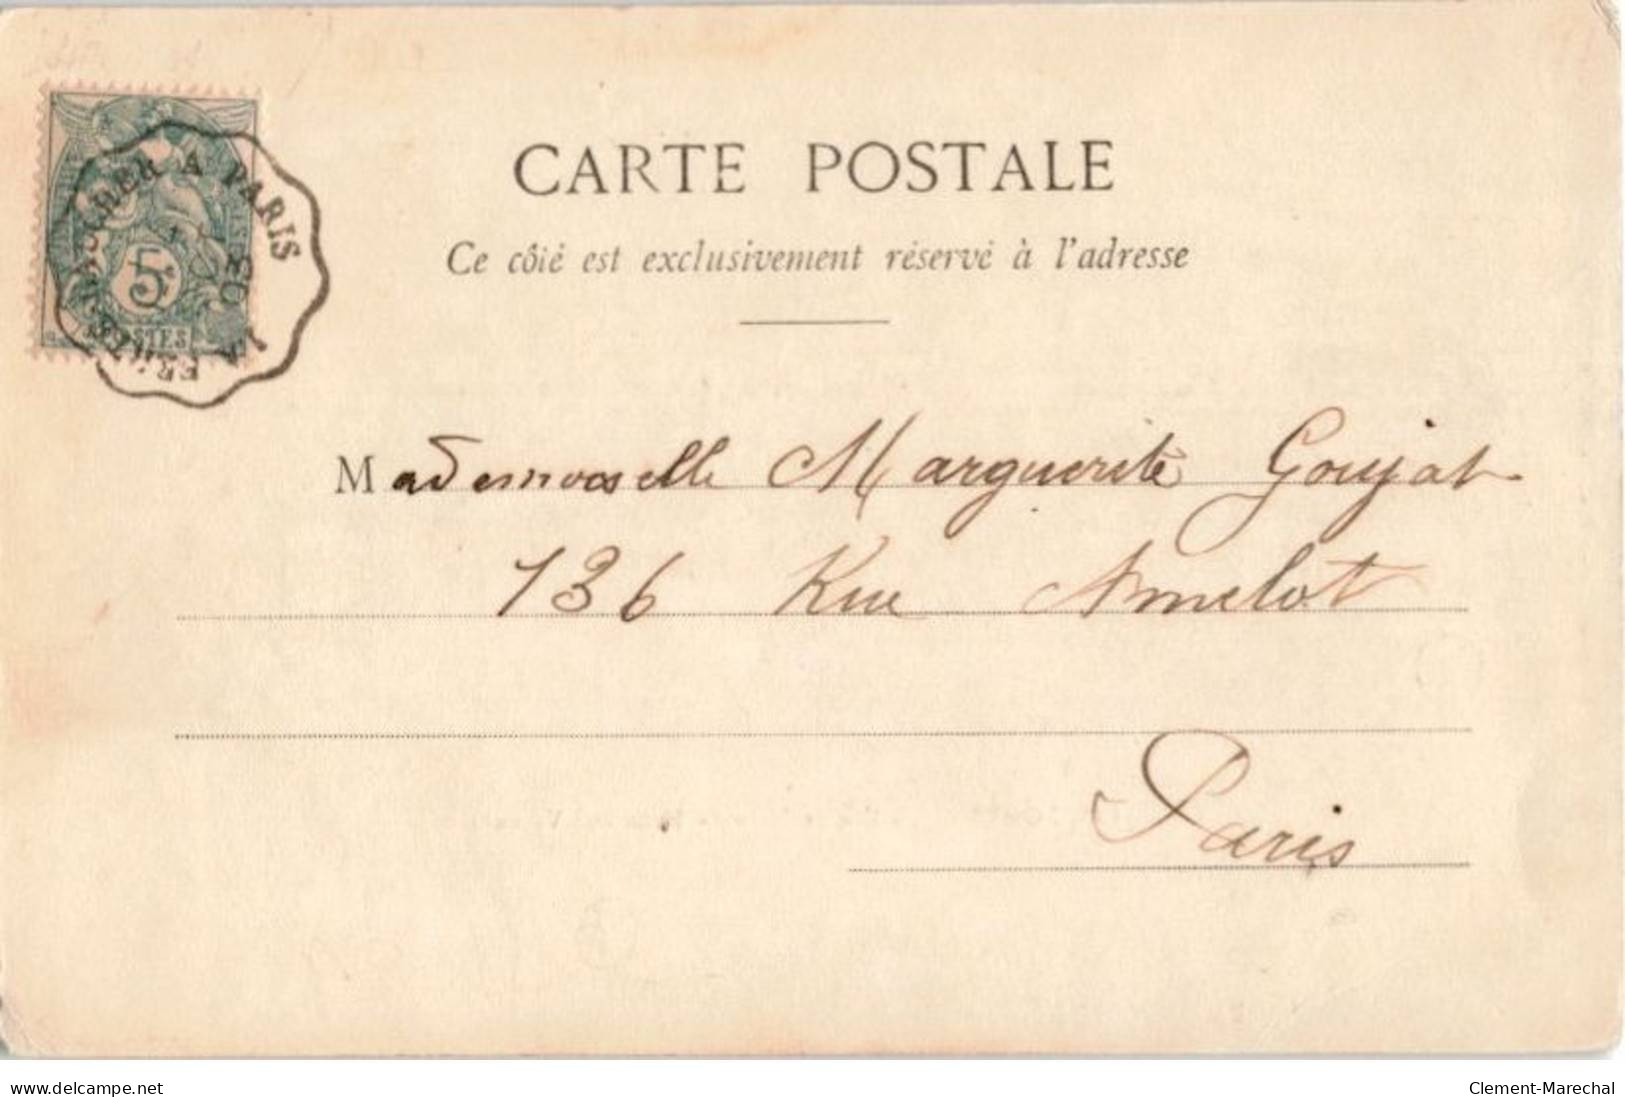 A PARIS
03
5
POSTES
CARTE POSTALE
Ce côté est exclusivement réservé à l'adresse
Mademoiselle Marguerite Goujat
136 Rue Amelot
Paris
www.delcampe.net
Clement-Marechal